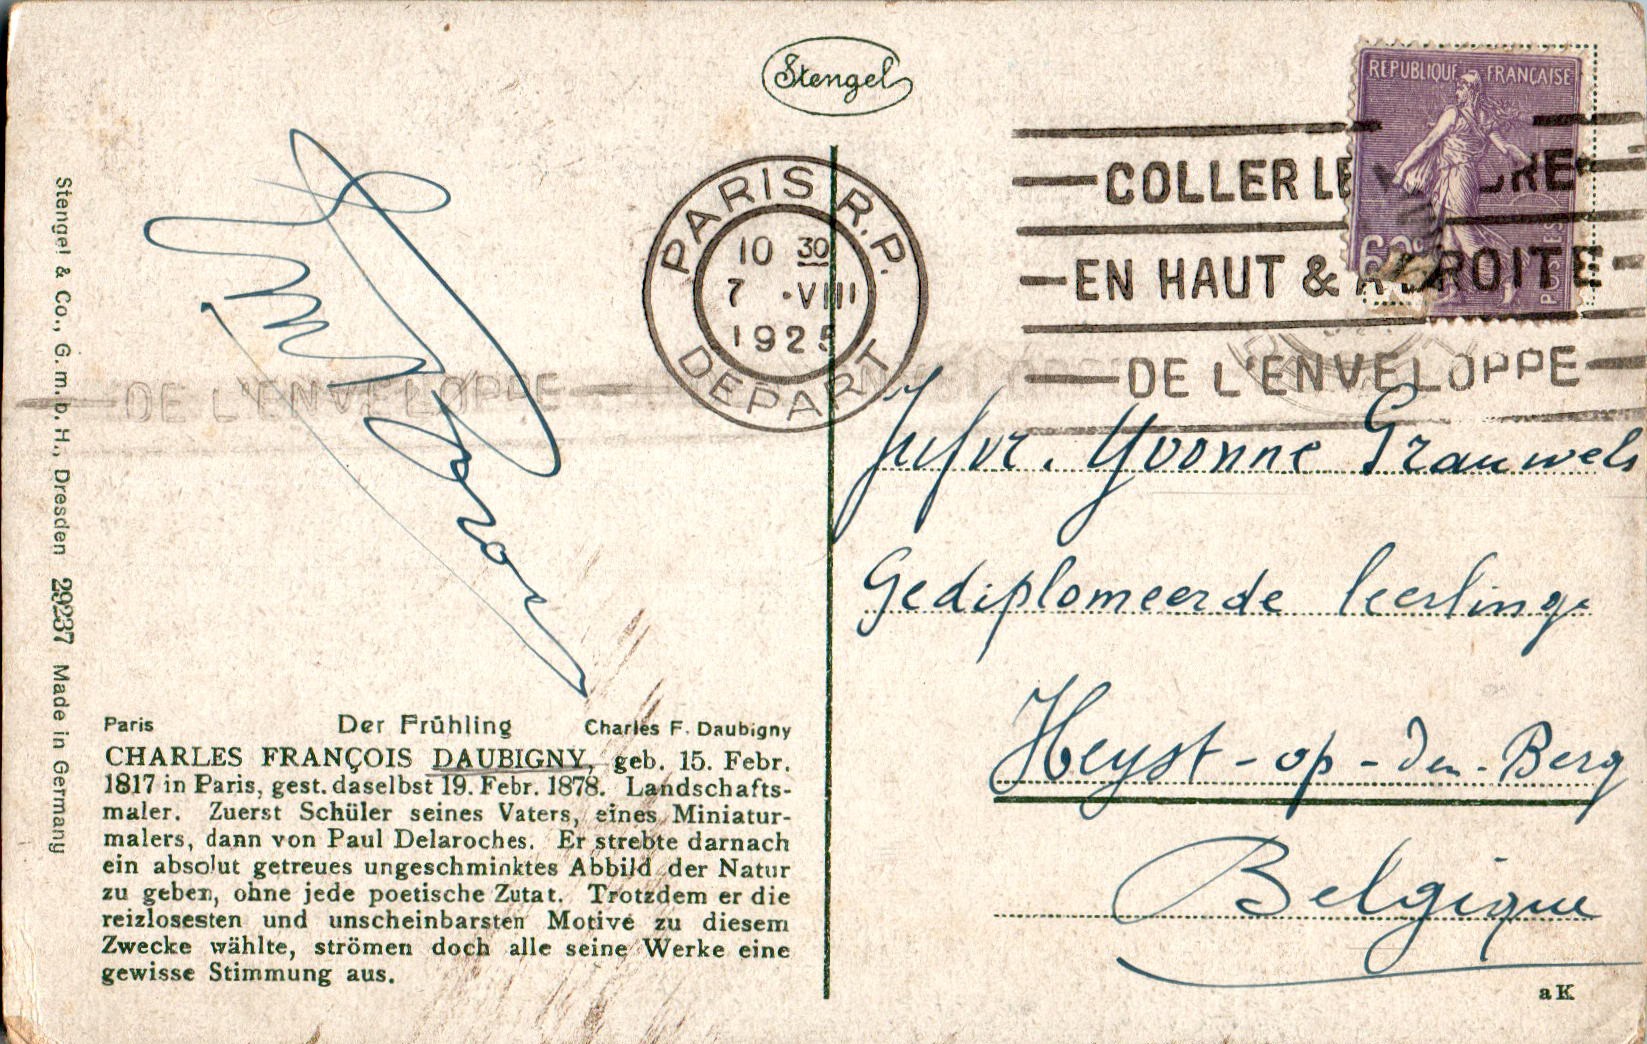 Stengel
REPUBLIQUE FRANÇAISE
POSTES
PARIS R.P.
10 30
7 ·VIII
1925
DEPART
COLLER LE
EN HAUT & A DROITE
DE L'ENVELOPPE
DE L'ENVELOPPE
Jufvr. Yvonne Grauwels
Gediplomeerde leerlinge
Heyst-op-den-Berg
Belgique
Stengel & Co., G. m. b. H., Dresden 29237 Made in Germany
Paris Der Frühling Charles F. Daubigny
CHARLES FRANÇOIS DAUBIGNY, geb. 15. Febr.
1817 in Paris, gest. daselbst 19. Febr. 1878. Landschafts-
maler. Zuerst Schüler seines Vaters, eines Miniatur-
malers, dann von Paul Delaroches. Er strebte darnach
ein absolut getreues ungeschminktes Abbild der Natur
zu geben, ohne jede poetische Zutat. Trotzdem er die
reizlosesten und unscheinbarsten Motive zu diesem
Zwecke wählte, strömen doch alle seine Werke eine
gewisse Stimmung aus.
aK